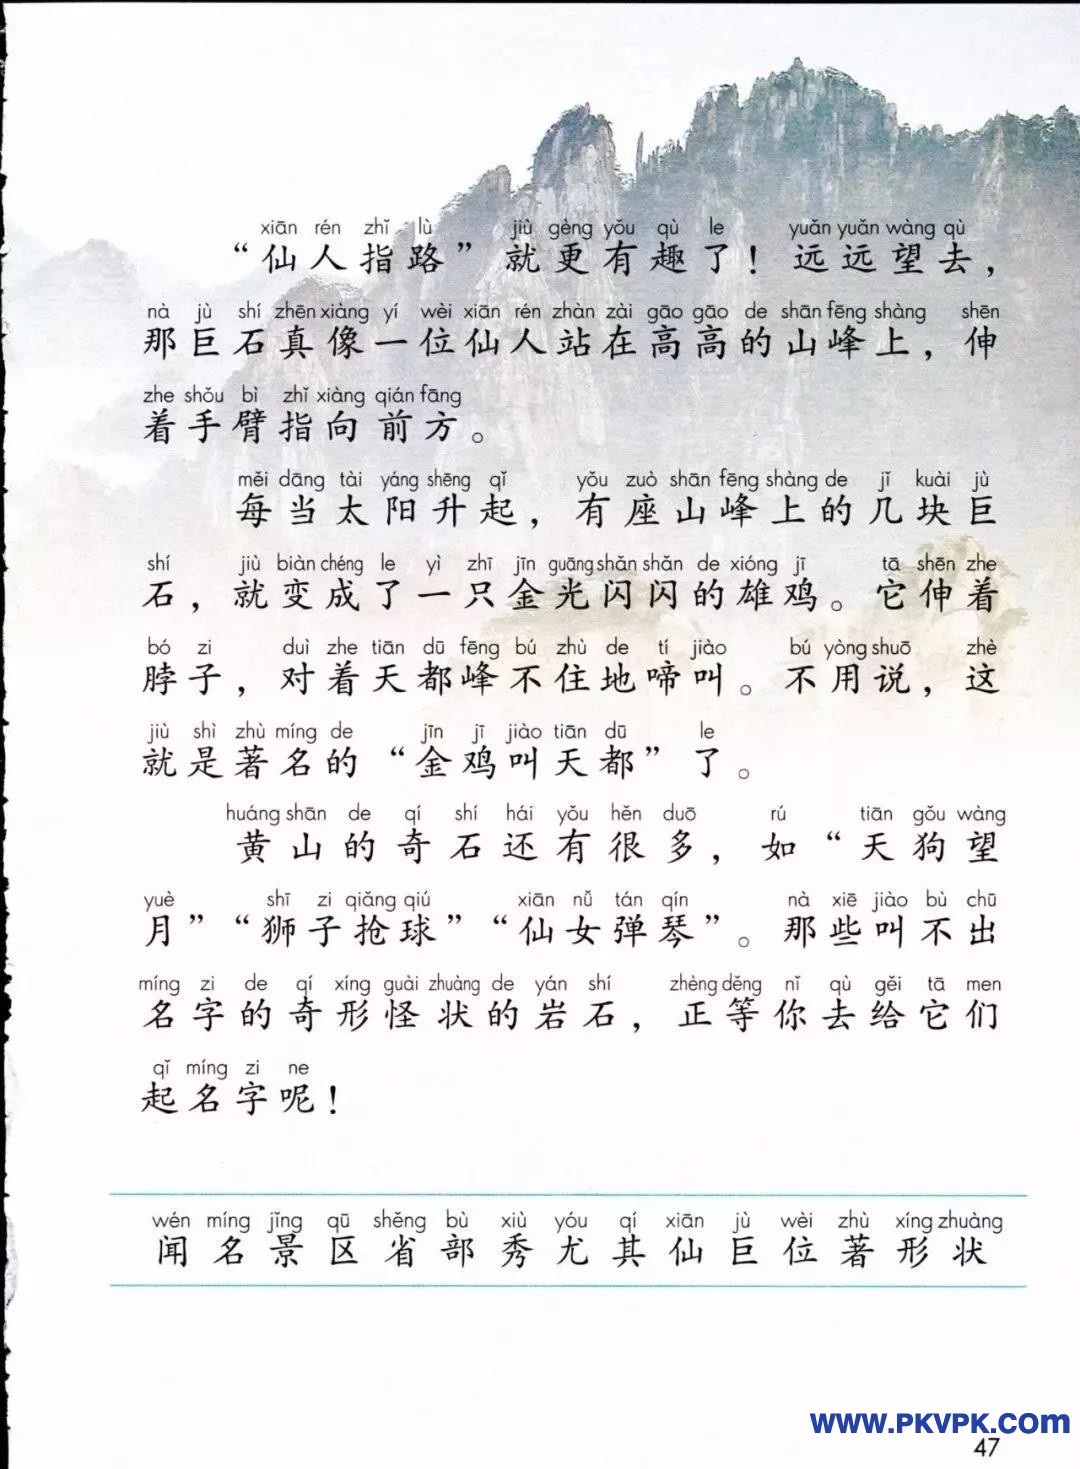 xiān rén zhǐ lù jiù gèng yǒu qù le yuǎn yuǎn wàng qù
“仙人指路”就更有趣了！远远望去，
nà jù shí zhēn xiàng yí wèi xiān rén zhàn zài gāo gāo de shān fēng shàng shēn
那巨石真像一位仙人站在高高的山峰上，伸
zhe shǒu bì zhǐ xiàng qián fāng
着手臂指向前方。
měi dāng tài yáng shēng qǐ yǒu zuò shān fēng shàng de jǐ kuài jù
每当太阳升起，有座山峰上的几块巨
shí jiù biàn chéng le yì zhī jīn guāng shǎn shǎn de xióng jī tā shēn zhe
石，就变成了一只金光闪闪的雄鸡。它伸着
bó zi duì zhe tiān dū fēng bú zhù de tí jiào bú yòng shuō zhè
脖子，对着天都峰不住地啼叫。不用说，这
jiù shì zhù míng de jīn jī jiào tiān dū le
就是著名的“金鸡叫天都”了。
huáng shān de qí shí hái yǒu hěn duō rú tiān gǒu wàng
黄山的奇石还有很多，如“天狗望
yuè shī zi qiǎng qiú xiān nǚ tán qín nà xiē jiào bù chū
月”“狮子抢球”“仙女弹琴”。那些叫不出
míng zi de qí xíng guài zhuàng de yán shí zhèng děng nǐ qù gěi tā men
名字的奇形怪状的岩石，正等你去给它们
qǐ míng zi ne
起名字呢！
wén míng jǐng qū shěng bù xiù yóu qí xiān jù wèi zhù xíng zhuàng
闻名景区省部秀尤其仙巨位著形状
www.PKVPK.com
47